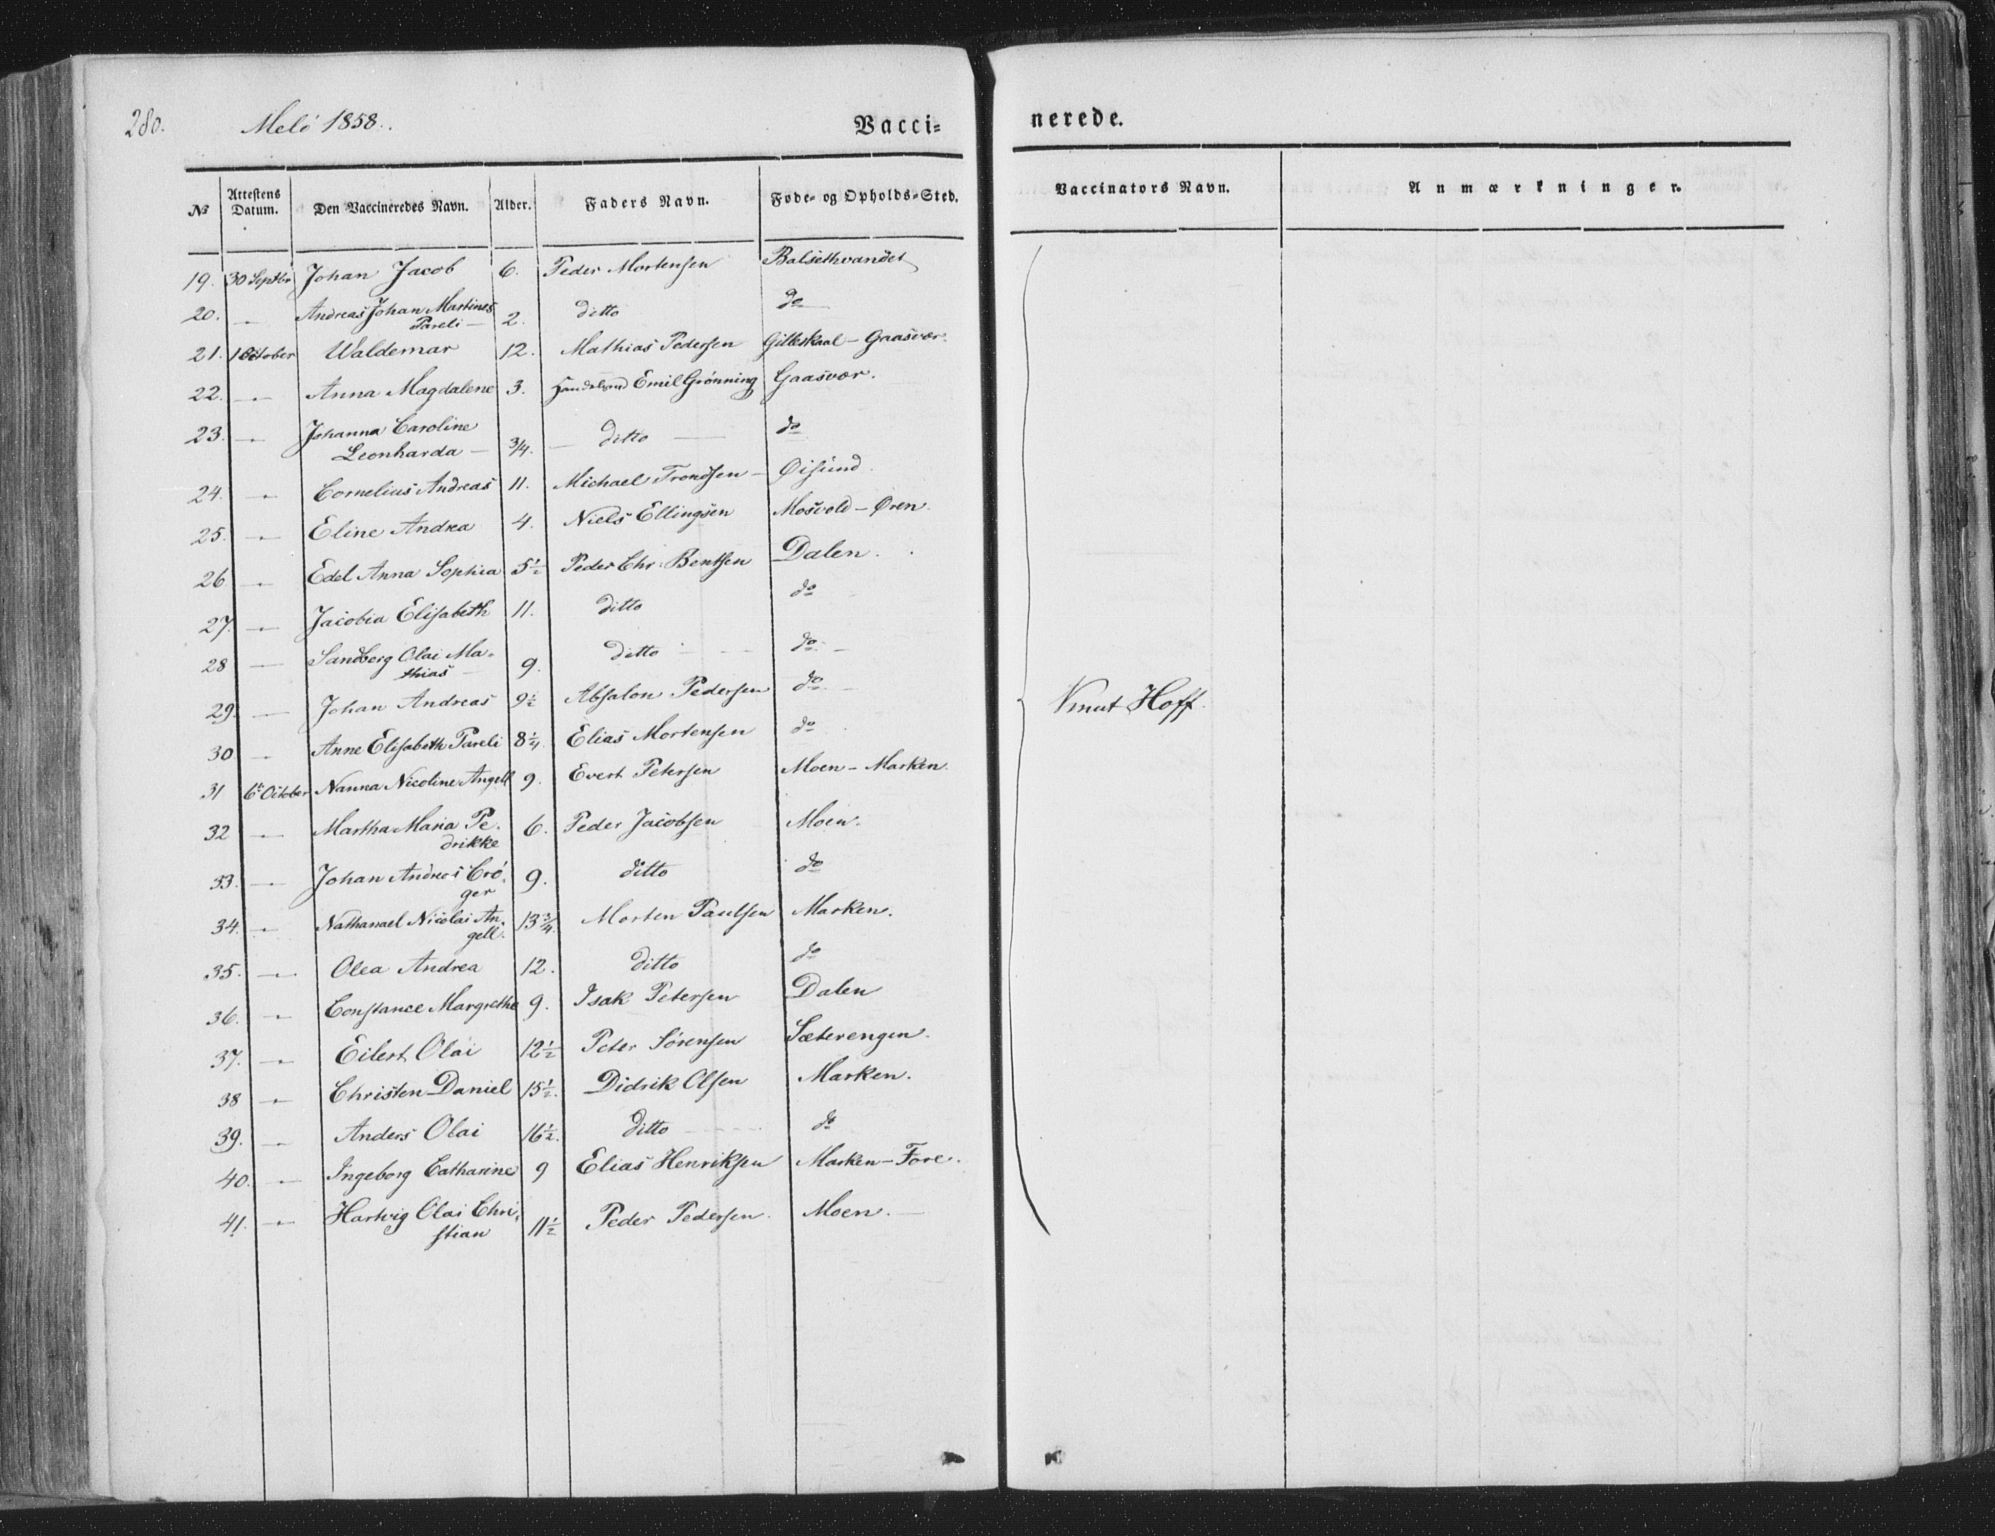 280. Melö 1858. Vacci- nerede.
№ Attestens Datum. Den Vaccineredes Navn. Alder. Faders Navn. Føde- og Opholds-Sted. Vaccinators Navn. Anmærkninger.
19. 30 Septbr Johan Jacob 6. Peder Mortensen Balsethvandet
20. — Andreas Johan Martines 2. ditto do
Pareli —
21. 1 October Waldemar 12. Mathias Pedersen Gilleskaal - Gaasvær.
22. — Anna Magdalene 3. Handelsmd Emil Grönning Gaasvær.
23. — Johanna Caroline
Leonharda — 3/4. — ditto — do
24. — Cornelius Andreas 11. Michael Trondsen — Øisund.
25. — Eline Andrea 4. Niels Ellingsen Mosvold - Øren.
26 — Edel Anna Sophia 5½ Peder Chr: Bentsen Dalen.
27. — Jacobia Elisabeth 11. ditto do
28 — Sandberg Olai Ma-
thias — 9. ditto — do —
29. — Johan Andreas 9½ Absalon Pedersen do —
Knut Hoff.
30 — Anne Elisabeth Pareli 8¼. Elias Mortensen do
31 6te October Nanna Nicoline Angell 9. Evert Petersen Moen - Marken.
32 — Martha Maria Pe-
drikke 6. Peder Jacobsen Moen.
33. — Johan Andreas Crö-
ger 9. ditto do
34. — Nathanael Nicolai An-
gell. 13¾. Morten Paulsen Marken.
35. — Olea Andrea 12. ditto do
36. — Constance Margrethe 9. Isak Petersen Dalen
37. — Eilert Olai 12½ Peter Sörensen Sæterengen.
38 — Christen Daniel 15½. Didrik Olsen Marken.
39. — Anders Olai 16½. ditto do
40. — Ingeborg Catharine 9 Elias Henriksen Marken - Fore.
41. — Hartvig Olai Chri-
stian 11½ Peder Pedersen. Moen. —